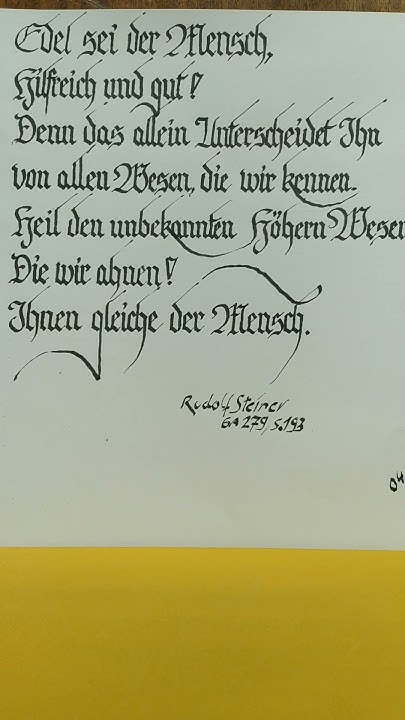 Edel sei der Mensch,
Hilfreich und gut!
Denn das allein Unterscheidet Ihn
von allen Wesen, die wir kennen.
Heil den unbekannten Höhern Wesen
Die wir ahnen!
Ihnen gleiche der Mensch.
Rudolf Steiner
GA 279, S.193